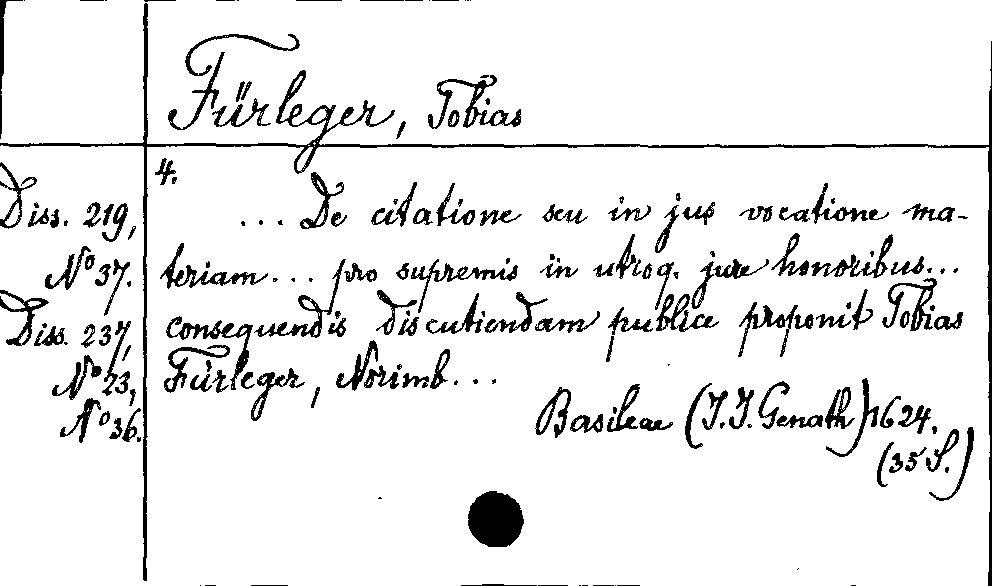 Fürleger, Tobias
4.
Diss. 219,
N° 37.
Diss. 237,
N° 23,
N° 36.
... De citatione seu in jus vocatione ma-
teriam... pro supremis in utroq. jure honoribus...
consequendis discutiendam publice proponit Tobias
Fürleger, Norimb...
Basileae (J.J. Genath) 1624.
(35 S.)